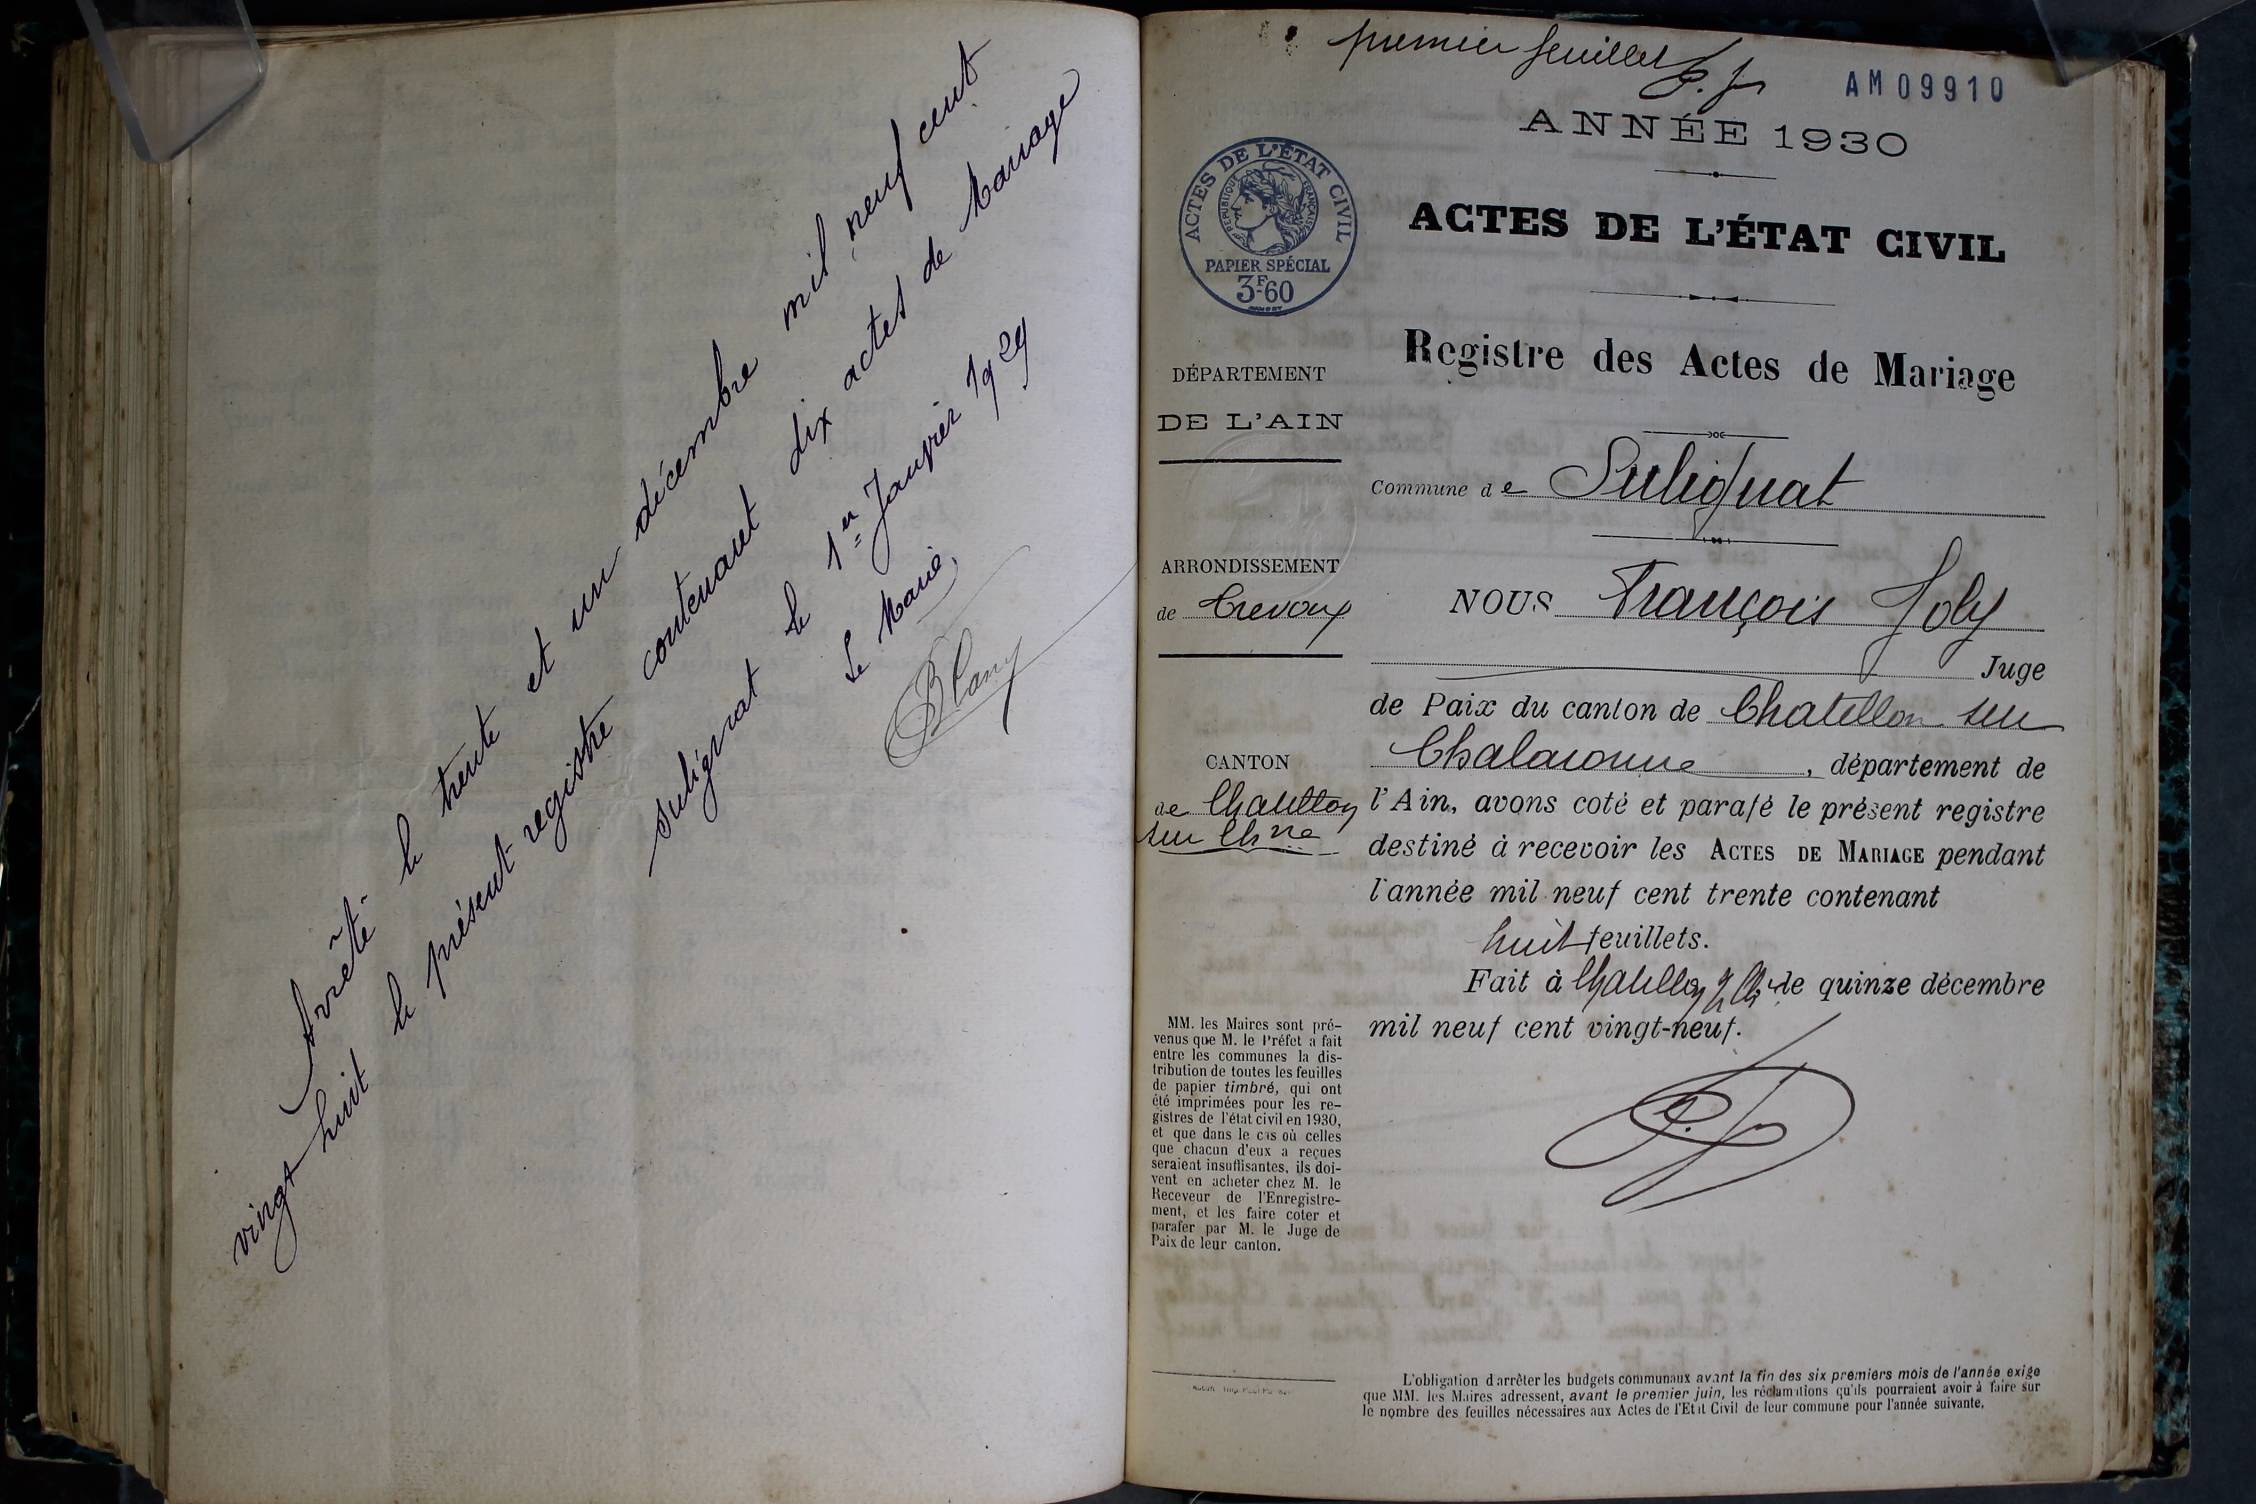 Arrêté le trente et un décembre mil neuf cent
vingt huit le présent registre contenant dix actes de Mariage
Sulignat le 1er Janvier 1929
Le Maire,
Blanc
premier feuillet
F. J.
AM09910
ANNÉE 1930
ACTES DE L'ÉTAT CIVIL
RÉPUBLIQUE FRANÇAISE
PAPIER SPÉCIAL
3F.60
ACTES DE L'ÉTAT CIVIL
Registre des Actes de Mariage
DÉPARTEMENT
DE L'AIN
Commune de Sulignat
ARRONDISSEMENT
de Trevoux
CANTON
de Chatillon
sur Chne
NOUS François Joly
Juge
de Paix du canton de Chatillon sur
Chalaronne, département de
l'Ain, avons coté et parafé le présent registre
destiné à recevoir les ACTES DE MARIAGE pendant
l'année mil neuf cent trente contenant
huit feuillets.
Fait à Chatillon s/ Ch. le quinze décembre
mil neuf cent vingt-neuf.
MM. les Maires sont pré-
venus que M. le Préfet a fait
entre les communes la dis-
tribution de toutes les feuilles
de papier timbré, qui ont
été imprimées pour les re-
gistres de l'état civil en 1930,
et que dans le cas où celles
que chacun d'eux a reçues
seraient insuffisantes, ils doi-
vent en acheter chez M. le
Receveur de l'Enregistre-
ment, et les faire coter et
parafer par M. le Juge de
Paix de leur canton.
L'obligation d'arrêter les budgets communaux avant la fin des six premiers mois de l'année exige
que MM. les Maires adressent, avant le premier juin, les réclamations qu'ils pourraient avoir à faire sur
le nombre des feuilles nécessaires aux Actes de l'Etat Civil de leur commune pour l'année suivante.